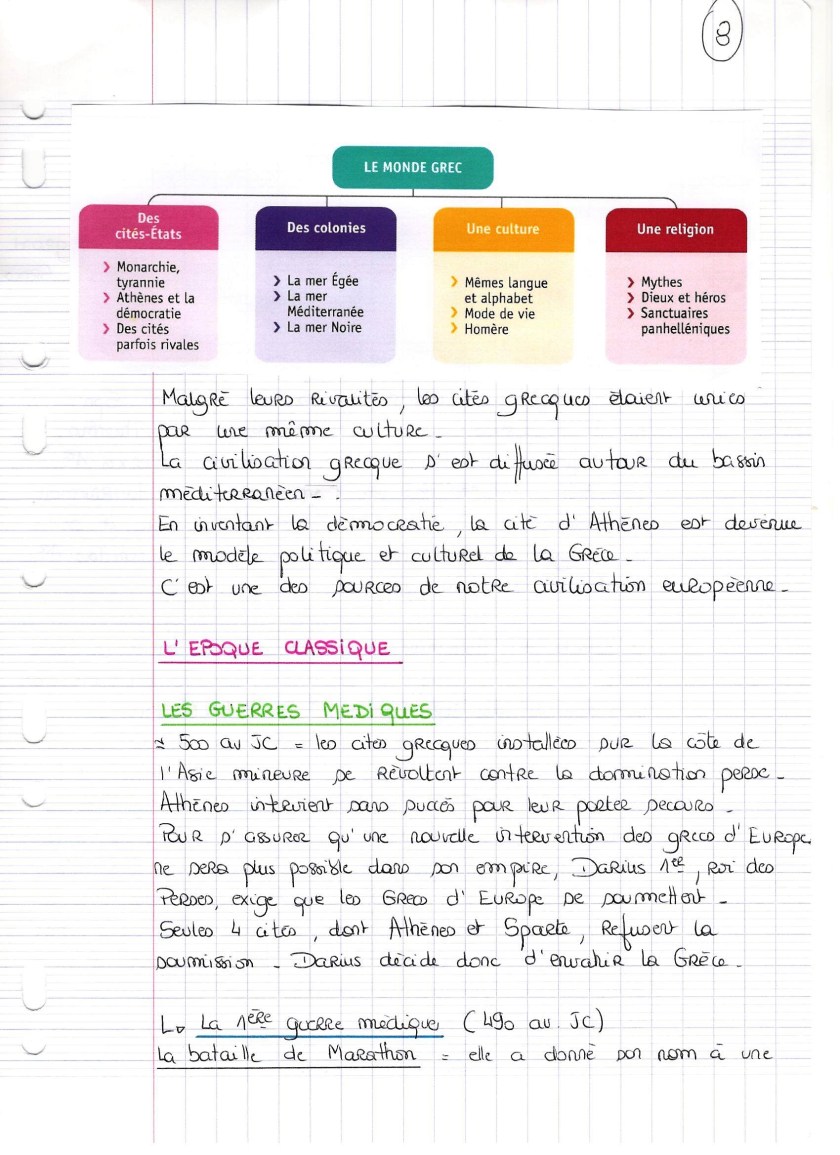 8
LE MONDE GREC
Des
cités-États
Monarchie,
tyrannie
Athènes et la
démocratie
Des cités
parfois rivales
Des colonies
La mer Égée
La mer
Méditerranée
La mer Noire
Une culture
Mêmes langue
et alphabet
Mode de vie
Homère
Une religion
Mythes
Dieux et héros
Sanctuaires
panhelléniques
Malgré leurs rivalités, les cités grecques étaient unies
par une même culture.
La civilisation grecque s'est diffusée autour du bassin
méditerranéen - .
En inventant la démocratie, la cité d'Athènes est devenue
le modèle politique et culturel de la Grèce.
C'est une des sources de notre civilisation européenne.
L'EPOQUE CLASSIQUE
LES GUERRES MEDIQUES
≈ 500 av JC = les cités grecques installées sur la côte de
l'Asie mineure se révoltent contre la domination perse.
Athènes intervient sans succès pour leur porter secours.
Pour s'assurer qu'une nouvelle intervention des grecs d'Europe
ne sera plus possible dans son empire, Darius 1er, roi des
Perses, exige que les Grecs d'Europe se soumettent.
Seules 4 cités, dont Athènes et Sparte, refusent la
soumission. Darius décide donc d'envahir la Grèce.
La 1ère guerre médique (490 av. JC)
La bataille de Marathon = elle a donné son nom à une